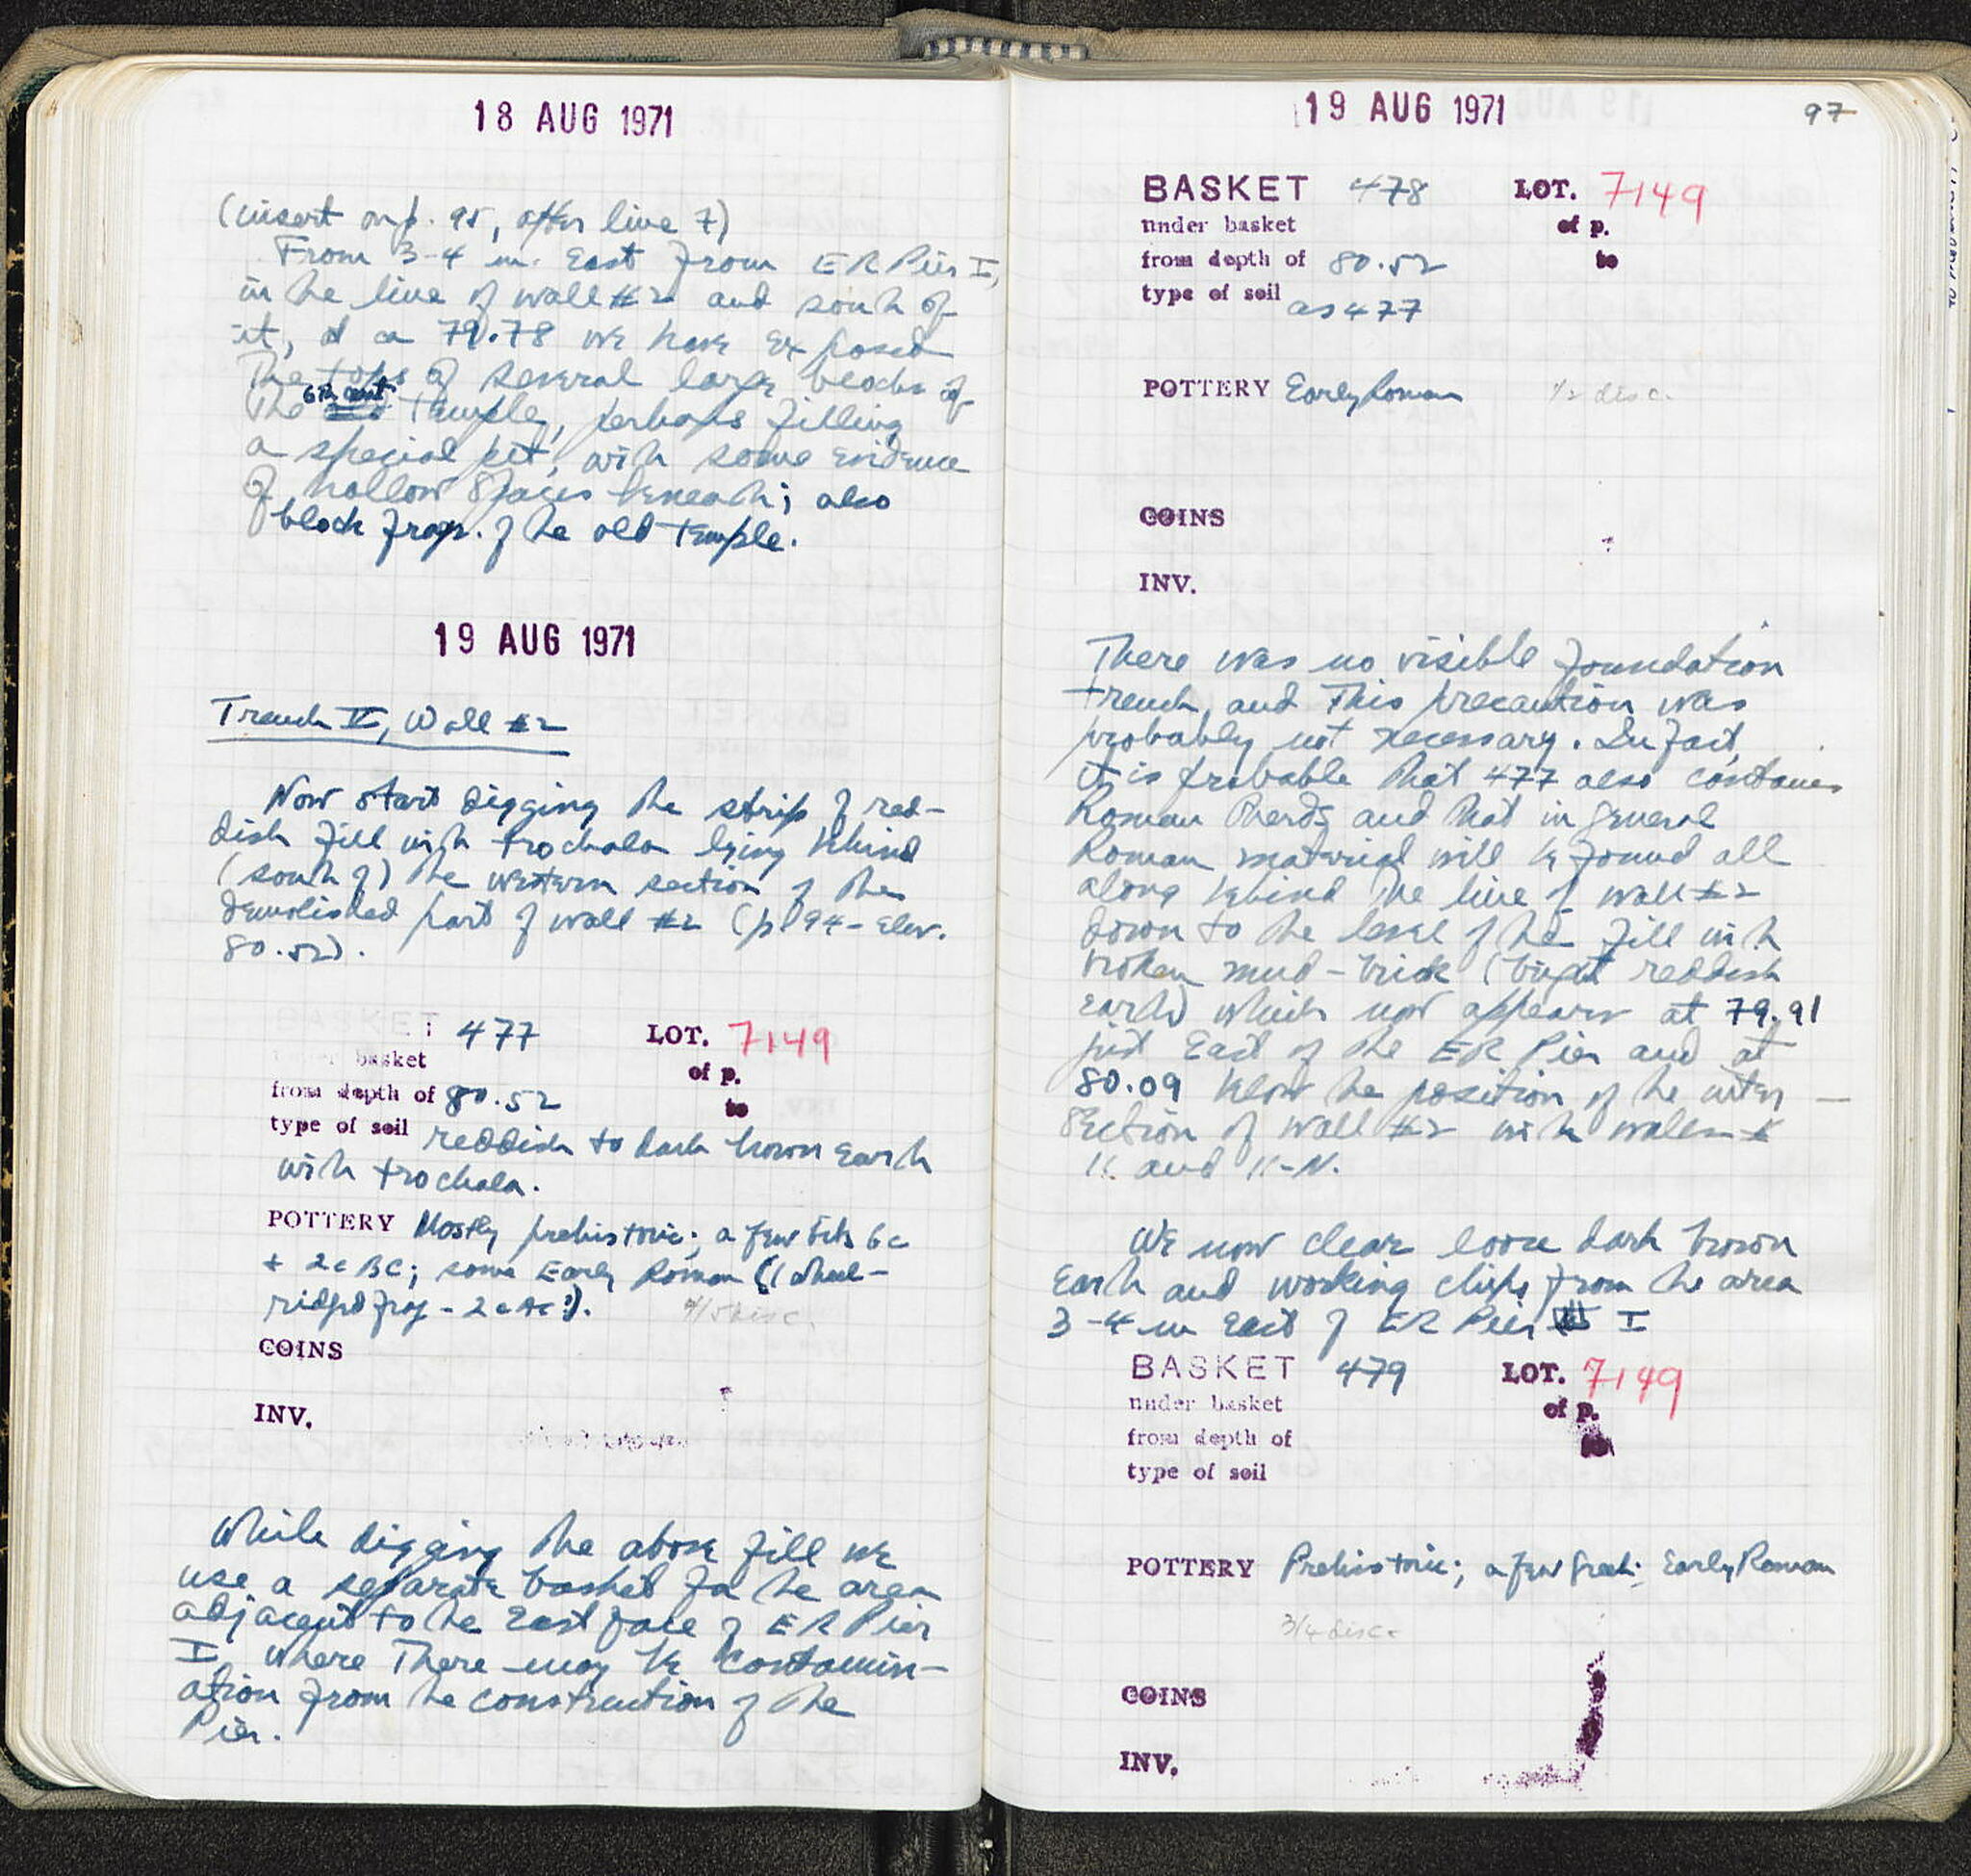 18 AUG 1971
(insert on p. 95, after line 7)
From 3-4 m. East from ER Pier I,
in the line of wall #2 and south of
it, at ca 79.78 we have exposed
The tops of several large blocks of
the 6th cent. Temple, perhaps filling
a special pit, with some evidence
of hollow spaces beneath; also
block frags. of the old temple.
19 AUG 1971
Trench V, Wall #2
Now start digging the strip of red-
dish fill with trochala lying behind
(south of) the western section of the
demolished part of wall #2 (p. 94 - elev.
80.52).
BASKET 477 LOT. 7149
under basket of p.
from depth of 80.52 to
type of soil reddish to dark brown earth
with trochala.
POTTERY Mostly prehistoric; a few bits 6c
+ 2c BC; some Early Roman (1 wheel-
ridged frag - 2c AC?).
4/5 disc.
COINS
INV.
While digging the above fill we
use a separate basket for the area
adjacent to the East face of ER Pier
I, where There may be contamin-
ation from the construction of the
Pier.
19 AUG 1971 97
BASKET 478 LOT. 7149
under basket of p.
from depth of 80.52 to
type of soil as 477
POTTERY Early Roman 1/2 disc.
COINS
INV.
There was no visible foundation
trench, and This precaution was
probably not necessary. In fact,
it is probable that 477 also contains
Roman sherds and that in general
Roman material will be found all
along behind the line of wall #2
down to the level of the fill with
broken mud-brick (bright reddish
earth) which now appears at 79.91
just East of the ER Pier and at
80.09 below the position of the inter-
section of wall #2 with walls
K and K-N.
We now clear loose dark brown
Earth and working chips from the area
3-4 m East of ER Pier I
BASKET 479 LOT. 7149
under basket of p.
from depth of to
type of soil
POTTERY Prehistoric; a few Greek; Early Roman
3/4 disc.
COINS
INV.